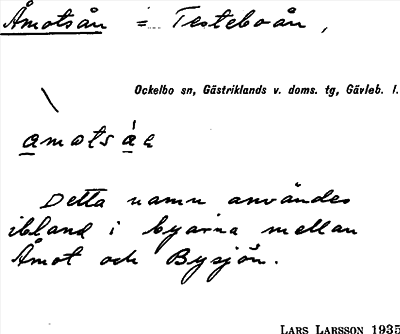 Åmotsån = Testeboån,
Ockelbo sn, Gästriklands v. doms. tg, Gävleb. l.
Detta namn användes
ibland i byarna mellan
Åmot och Bysjön.
LARS LARSSON 1935